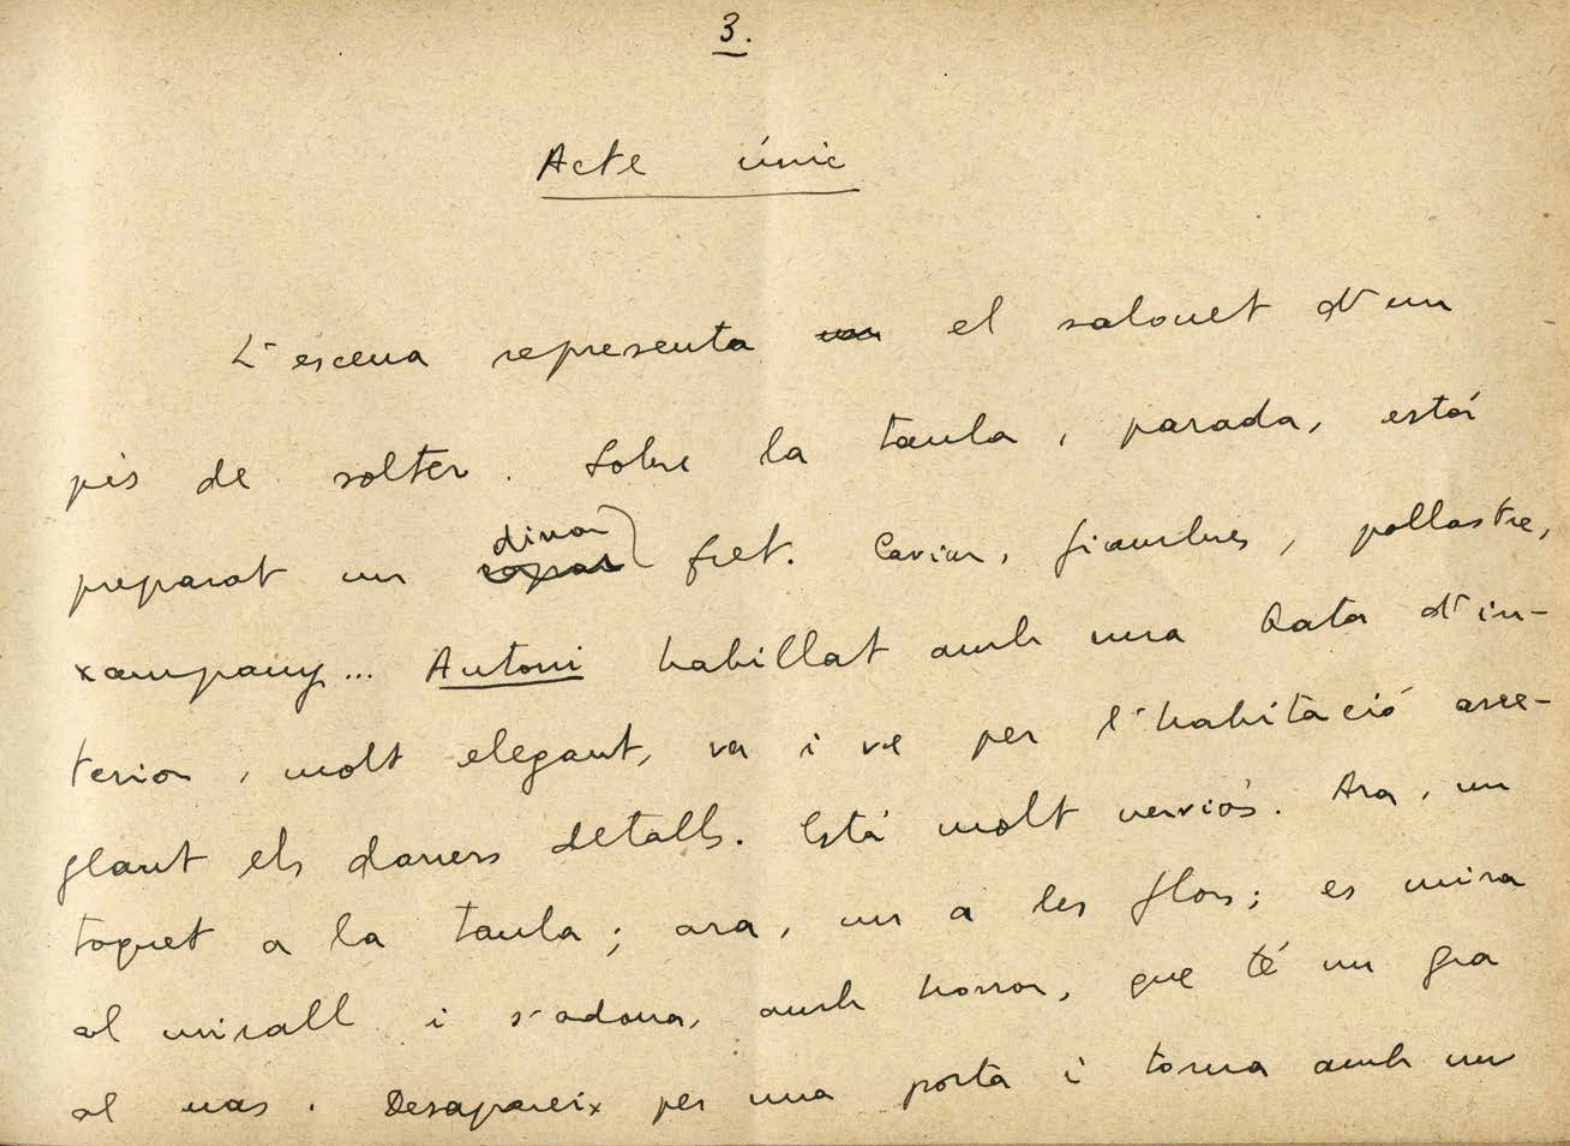 3.
Acte únic
L'escena representa el salonet d'un
pis de solter. Sobre la taula, parada, està
preparat un dinar fret. Caviar, fiambres, pollastre,
xampany... Antoni habillat amb una bata d'in-
terior, molt elegant, va i ve per l'habitació arre-
glant els darrers detalls. Està molt nerviós. Ara, un
toquet a la taula; ara, un a les flors; es mira
al mirall i s'adona, amb horror, que té un gra
al nas. Desapareix per una porta i torna amb un